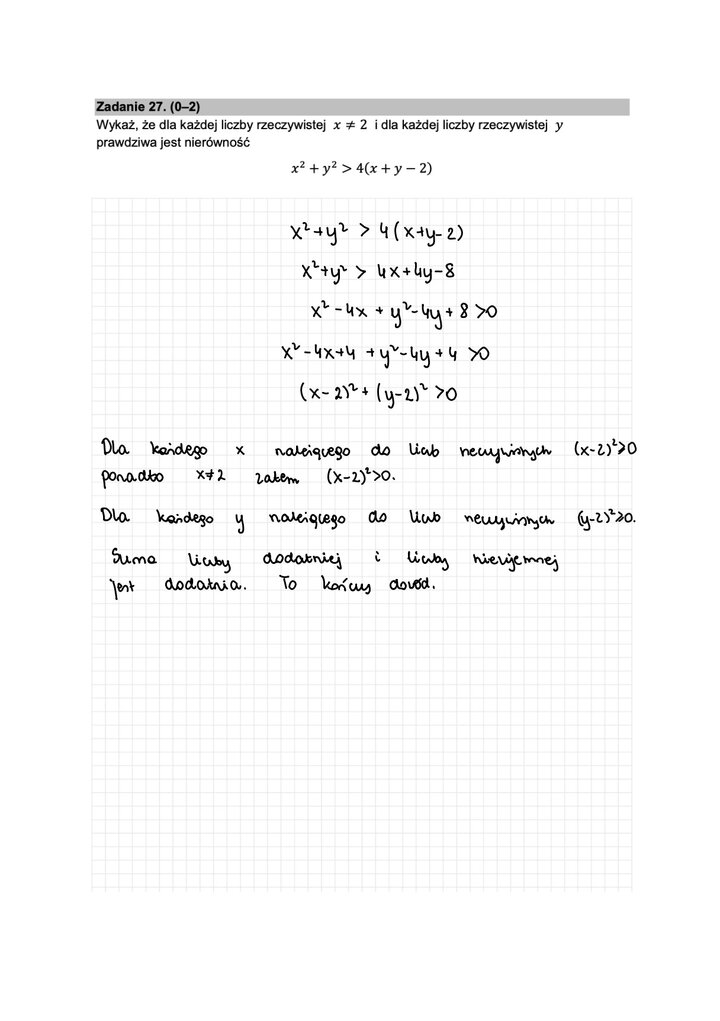 Zadanie 27. (0–2)
Wykaż, że dla każdej liczby rzeczywistej x ≠ 2 i dla każdej liczby rzeczywistej y
prawdziwa jest nierówność
x² + y² > 4(x + y − 2)
x²+y² > 4(x+y-2)
x²+y² > 4x+4y-8
x²-4x + y²-4y+8>0
x²-4x+4 + y²-4y+4 >0
(x-2)²+(y-2)² >0
Dla każdego x należącego do liczb rzeczywistych (x-2)²⩾0
ponadto x≠2 zatem (x-2)²>0.
Dla każdego y należącego do liczb rzeczywistych (y-2)²⩾0.
Suma liczby dodatniej i liczby nieujemnej
jest dodatnia. To kończy dowód.